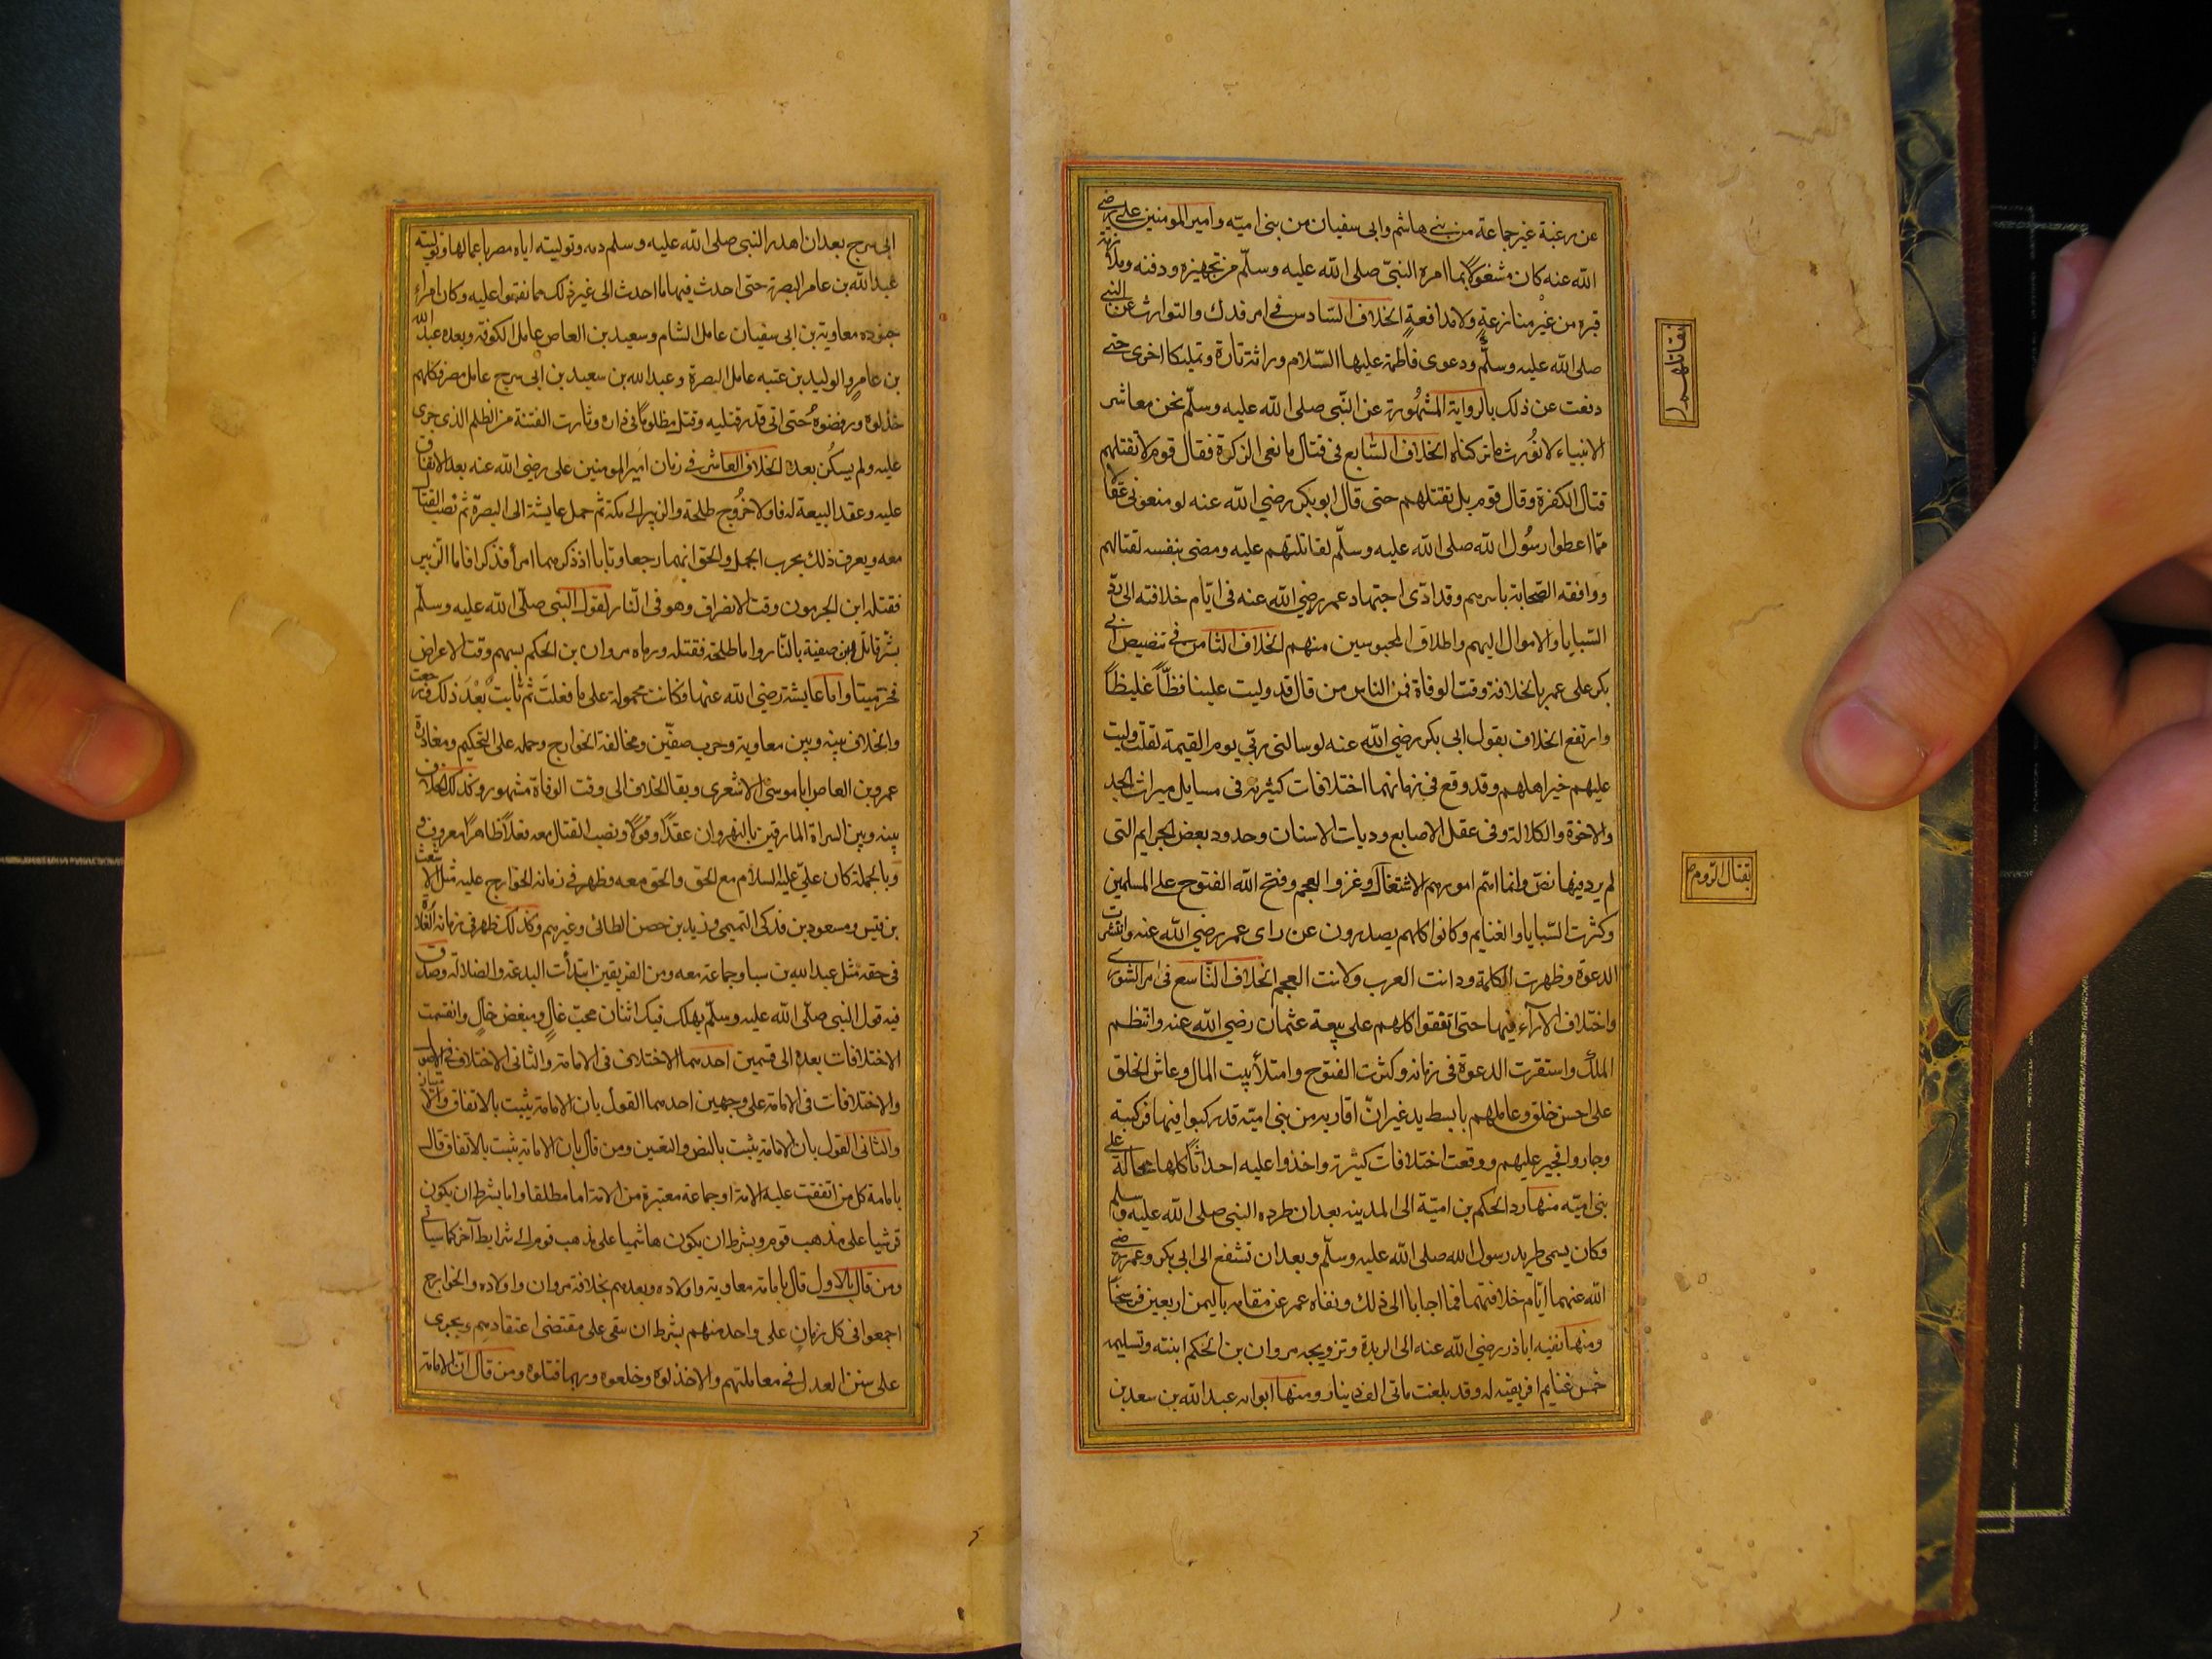 عن رغبة غير جماعة من بني هاشم وابى سفيان من بنى اميّه وامير المومنين على رضى
الله عنه كان مشغولاً بما امره النبىّ صلى الله عليه وسلّم من تجهيزه ودفنه وملازمة
قبره من غير منازعةٍ ولا مدافعةٍ الخلاف السّادس فى امر فدك والتوارث عن النبى
صلى الله عليه وسلّم ودعوى فاطمة عليها السّلام وراثة تارة وتمليكا اخرى حتى
دفعت عن ذلك بالرواية المشهُورة عن النّبى صلى الله عليه وسلّم نحن معاشر
الانبياء لا نُورث ما تركناه الخلاف السّابع فى قتال مانعى الزكوة فقال قوم لا نقتلهم
قتال الكفرة وقال قوم بل نقتلهم حتى قال ابو بكر رضي الله عنه لو منعونى عقالا
ممّا اعطوا رسُول الله صلى الله عليه وسلّم لقاتلتهم عليه ومضى بنفسه لقتالهم
ووافقه الصّحابة باسرهم وقد ادّى اجتهاد عمر رضي الله عنه فى ايّام خلافته الى ردّ
السّبايا والاموال اليهم واطلاق المحبوسين منهم الخلاف الثامن فى تنصيص ابى
بكر على عمر بالخلافة وقت الوفاة فمن الناس من قال قد وليت علينا فظّاً غليظاً
وارتفع الخلاف بقول ابى بكر رضي الله عنه لو سالنى ربّى يوم القيمة لقلت وليت
عليهم خير اهلهم وقد وقع فى زمانهما اختلافات كثيرة فى مسايل ميراث الجد
والاخوة والكلالة وفى عقل الاصابع وديات الاسنان وحدود بعض الجرايم التى
لم يرد فيها نصّ وانما اهتم امورهم الاشتغال وغزوا العجم وفتح الله الفتوح على المسلمين
وكثرت السّبايا والغنايم وكانوا كلهم يصدرون عن راى عمر رضي الله عنه وانتشرت
الدعوة وظهرت الكلمة ودانت العرب ولانت العجم الخلاف التّاسع فى امر الشورى
واختلاف الآراء فيها حتى اتفقوا كلهم على بيعة عثمان رضي الله عنه وانتظم
الملك واستقرت الدعوة فى زمانه وكثرت الفتوح وامتلأ بيت المال وعاش الخلق
على احسن خلق وعاملهم بابسط يد غير انّ اقاربه من بنى اميّه قد ركبوا فركبته
وجاروا فجير عليهم ووقعت اختلافات كثيرة واخذوا عليه احداثاً كلها محالة على
بنى اميّه منها رد الحكم بن اميّة الى المدينه بعد ان طرده النبى صلى الله عليه وسلم
وكان يسمى طريد رسول الله صلى الله عليه وسلّم وبعد ان تشفع الى ابى بكر وعمر رضى
الله عنهما ايّام خلافتهما فما اجابا الى ذلك ونفاه عمر عن مقامه باليمن اربعين فرسخاً
ومنها نفيه اباذر رضي الله عنه الى الربذة وتزويجه مروان بن الحكم ابنته وتسليمه
خمس غنايم افريقيه له وقد بلغت ماتى الف دينار ومنها ايوائه عبد الله بن سعد بن
نقاتلهم
بقتال الروم
ابى سرح بعد ان اهدر النبى صلى الله عليه وسلم دمه وتوليته اياه مصر باعمالها وتوليته
عبد الله بن عامر البصرة حتى احدث فيها ما احدث الى غير ذلك مما نقموا عليه وكان امراء
جنوده معاوية بن ابى سفيان عامل الشام وسعيد بن العاص عامل الكوفة وبعده عبد الله
بن عامر والوليد بن عتبه عامل البصرة وعبد الله بن سعيد بن ابى سرح عامل مصر فكلهم
خذلوه ورفضوه حُتى اتى قدره قتليه وقتل مظلوماً فى داره وثارت الفتنة من الظلم الذى جرى
عليه ولم يسكُن بعده الخلاف العاشر فى زمان امير المومنين على رضي الله عنه بعد الاتفاق
عليه وعقد البيعة له فاولا خرُوج طلحة والزبير الى مكة ثم حمل عايشة الى البصرة ثم نصب القتال
معه ويعرف ذلك بحرب الجمل والحق انهما رجعا وتابا اذ ذكرهما امراً فذكرا فاما الزبير
فقتله ابن الجرمون وقت الانصراف وهو فى النّار لقول النبى صلّى الله عليه وسلّم
بشّر قاتل ابن صفية بالنّار واما طلحة فقتله ورماه مروان بن الحكم بسهم وقت الاعراض
فخر ميتا واما عايشة رضي الله عنها فكانت محمولة على ما فعلت ثم تابت بعْدَ ذلك ورجعت
والخلاف بينه وبين معاوية وحرب صفّين ومخالفة الخوارج وحمله على التحكيم ومغادرة
عمرو بن العاص ابا موسى الاشعرى وبقا الخلاف الى وقت الوفاة مشهور وكذلك الخلاف
بينه وبين السراة المارقين بالنهروان عقداً وقولاً ونصب القتال معه فعلاً ظاهراً معروف
وبالجملة كان علىّ عليه السلام مع الحق والحق معه وظهر فى زمانه الخوارج عليه مثل الاشعث
بن قيس ومسعود بن فدكى التميمى وزيد بن حصن الطائى وغيرهم وكذلك ظهر فى زمانه الغُلاة
فى حقه مثل عبد الله بن سبا وجماعة معه ومن الفريقين ابتدأت البدعة والضلالة وصدق
فيه قول النبى صلّى الله عليه وسلّم يهلك فيك اثنان محبّ غالٍ ومبغض خالٍ وانقسمت
الاختلافات بعده الى قسمين احدهما الاختلاف فى الامامة والثانى الاختلاف فى الاصول
والاختلافات فى الامامة على وجهين احدهما القول بان الامامة يثبت بالاتفاق والاختيار
والثانى القول بان الامامة يثبت بالنص والتعين ومن قال بان الامامة يثبت بالاتفاق قال
بامامة كل من اتفقت عليه الامة او جماعة معتبرة من الامة اما مطلقا واما بشرط ان يكون
قرشيا على مذهب قوم وبشرط ان يكون هاشميا على مذهب قوم الى شرايط آخر كما سياتى
ومن قال بالاول قال بامامة معاوية واولاده وبعدهم بخلافة مروان واولاده والخوارج
اجمعوا فى كل زمان على واحد منهم بشرط ان يبقى على مقتضى اعتقادهم ويجرى
على سنن العدل فى معاملتهم والا خذلوه وخلعوه وربما قتلوه ومن قال انّ الامامة